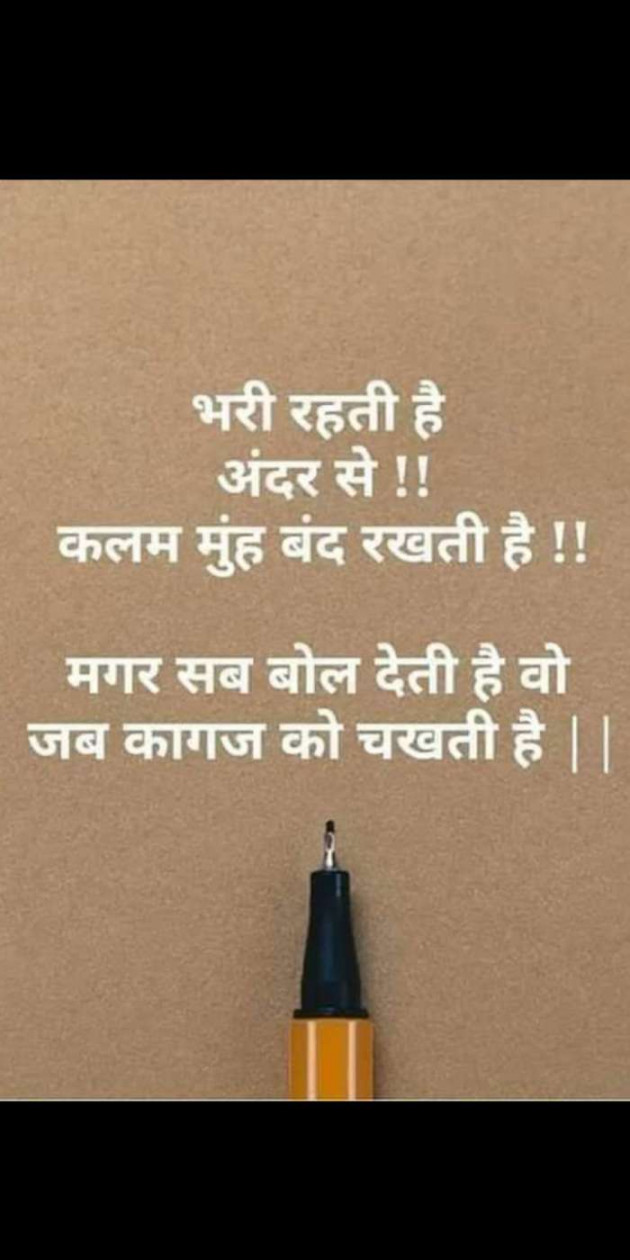 भरी रहती है
अंदर से !!
कलम मुंह बंद रखती है !!
मगर सब बोल देती है वो
जब कागज को चखती है ||